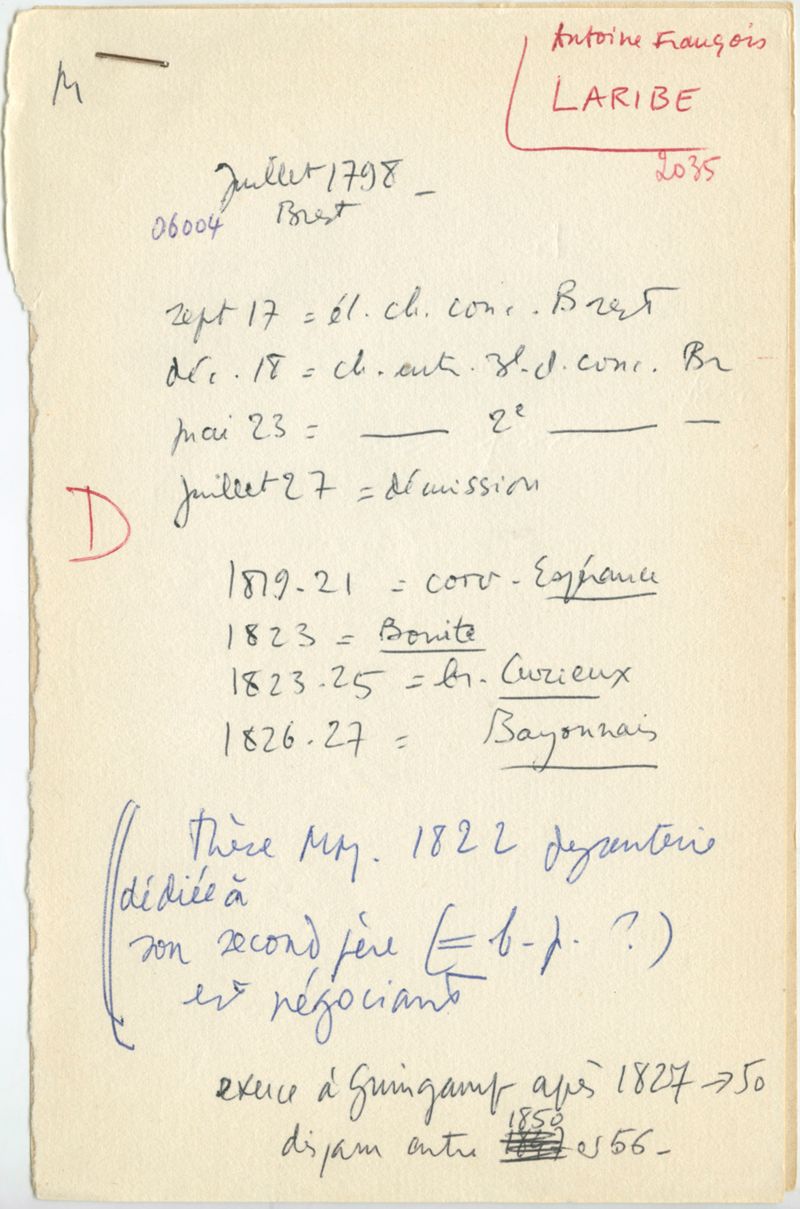 M
Antoine François
LARIBE
2035
Juillet 1798 -
Brest
06004
sept 17 = él. ch. conc. Brest
déc. 18 = ch. entr. 3e cl. conc. Br
mai 23 = —— 2e —— —
Juillet 27 = démission
D
1819-21 = corv. Espérance
1823 = Bonite
1823-25 = br. Curieux
1826-27 = Bayonnais
Thèse 1822 dysenterie
dédiée à
son second père (= b-p. ?)
est négociant
exerce à Guingamp après 1827 → 50
disparu entre 1850 et 56 -